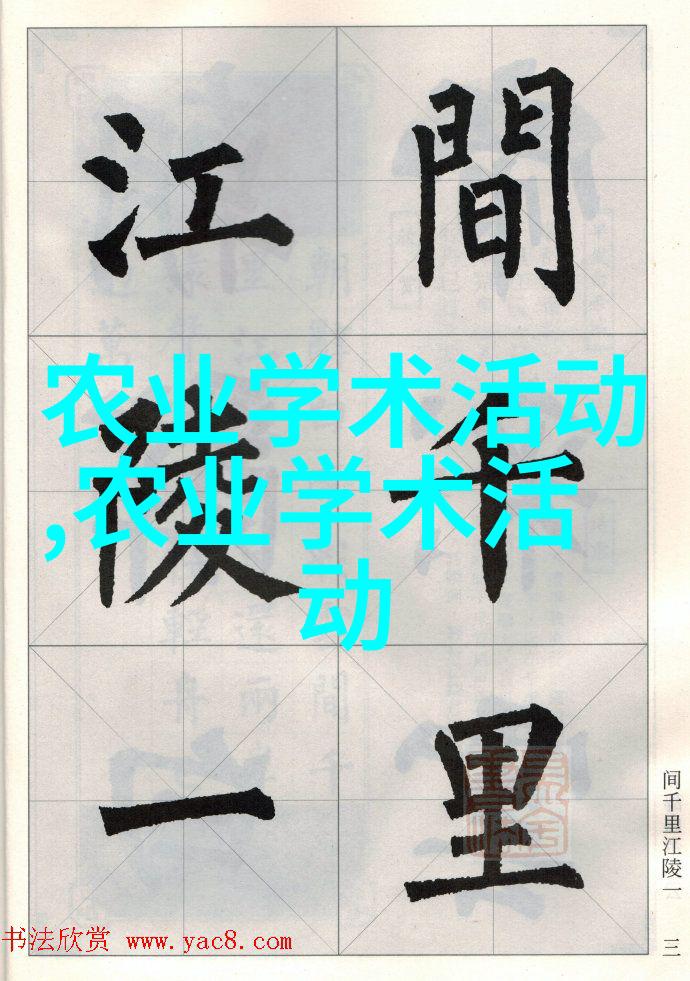 間千里
江陵一
农业学术活动
,农业学术活
动
间千里江陵一
三
书法欣赏 www.yac8.com